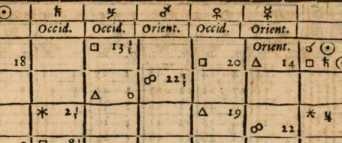 ☉ ♄ ♃ ♂ ♀ ☿
Occid. Occid. Orient. Occid. Orient.
□ 13½ Orient. ☌ ☉
18 □ 20 △ 14 □ ♄
☍ 22½
△ 0
⚹ 2½ △ 19 ⚹ ♃
☍ 22
□ 8½